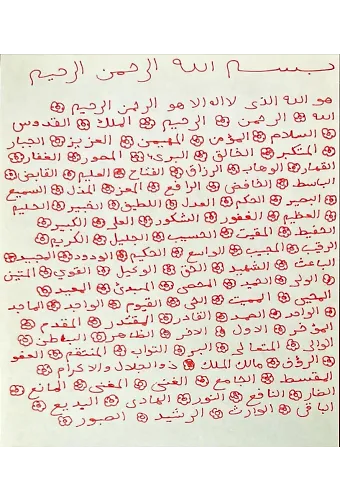 بسم الله الرحمن الرحيم
هو الله الذى لا اله الا هو الرحمن الرحيم
الله الرحمن الرحيم الملك القدوس
السلام المؤمن المهيمن العزيز الجبار
المتكبر الخالق البرئ المصور الغفار
القهار الوهاب الرزاق الفتاح العليم القابض
الباسط الخافض الرافع المعز المذل السميع
البصير الحكم العدل اللطيف الخبير الحليم
العظيم الغفور الشكور العلى الكبير
الحفيظ المقيت الحسيب الجليل الكريم
الرقيب المجيب الواسع الحكيم الودود المجيد
الباعث الشهيد الحق الوكيل القوي المتين
الولي الحميد المحصي المبدئ المعيد
المحيى المميت الحي القيوم الواجد الماجد
الواحد الصمد القادر المقتدر المقدم
المؤخر الاول الاخر الظاهر الباطن
الوالي المتعالى البر التواب المنتقم العفو
الرؤف مالك الملك ذو الجلال والاكرام
المقسط الجامع الغنى المغنى المانع
الضار النافع النور الهادى البديع
الباقى الوارث الرشيد الصبور